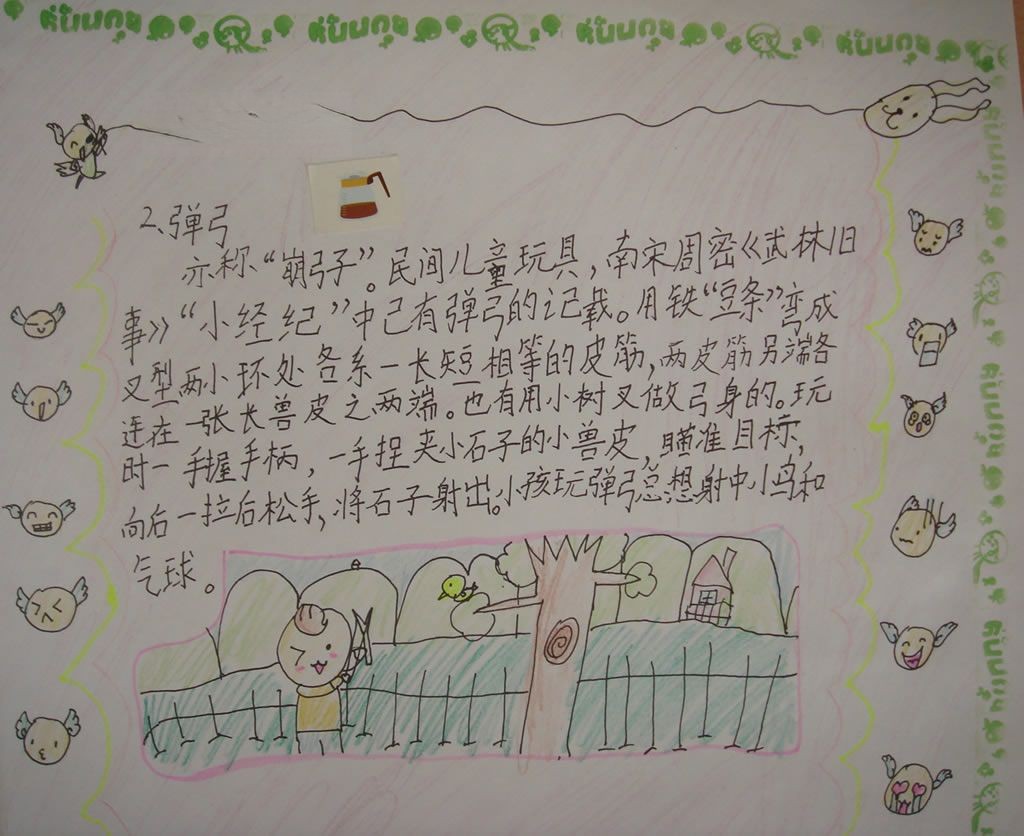 2、弹弓
亦称“崩弓子”。民间儿童玩具，南宋周密《武林旧
事》“小经纪”中已有弹弓的记载。用铁“豆条”弯成
叉型两小环处各系一长短相等的皮筋，两皮筋另端各
连在一张长兽皮之两端。也有用小树叉做弓身的。玩
时一手握手柄，一手捏夹小石子的小兽皮，瞄准目标，
向后一拉后松手，将石子射出。小孩玩弹弓总想射中小鸟和
气球。